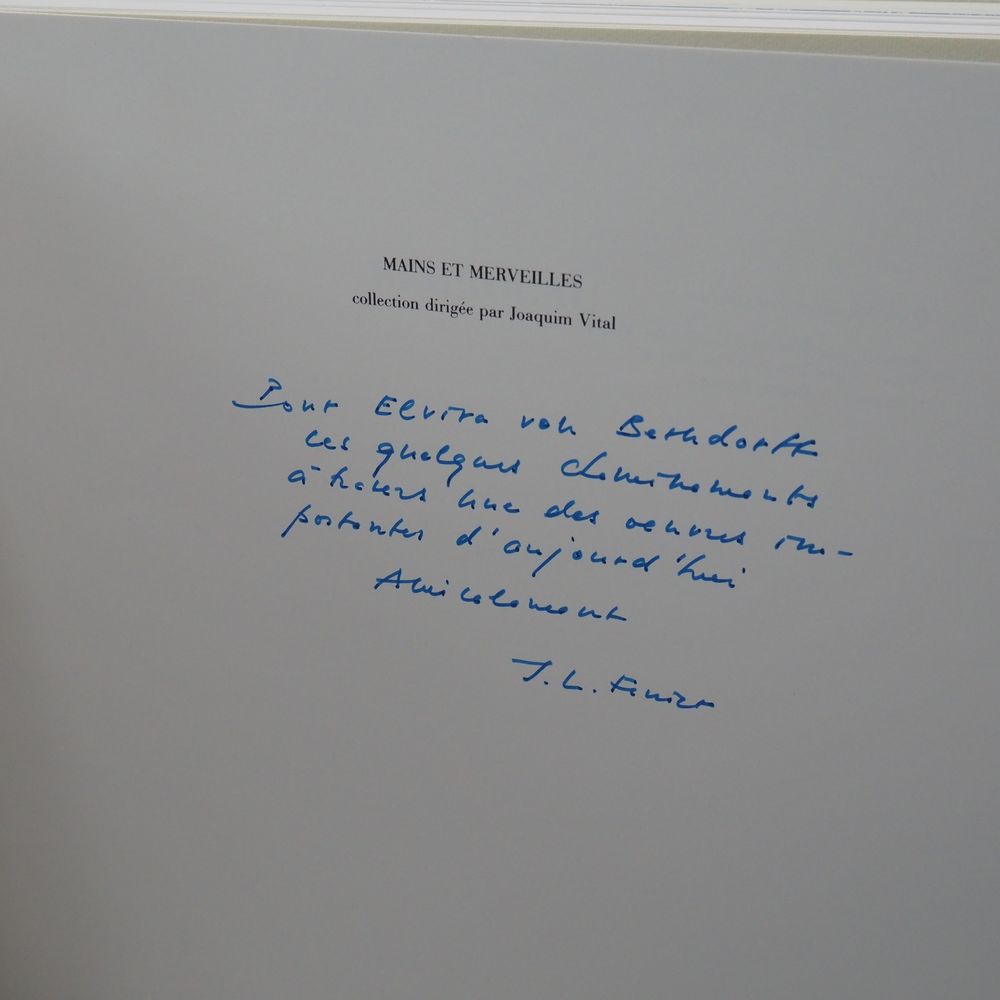 MAINS ET MERVEILLES
collection dirigée par Joaquim Vital
Pour Elvira von Bethdorff
ces quelques cheminements
à travers une des œuvres im-
portantes d'aujourd'hui
Amicalement
J. L. Ferrier